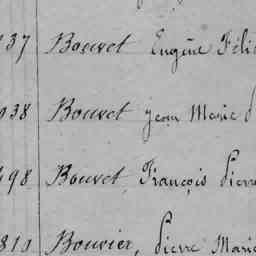 37 Bouvet Eugène Féli
038 Bouvet jean Marie
498 Bouvet, François Pierre
810 Bouvier, Pierre Marie